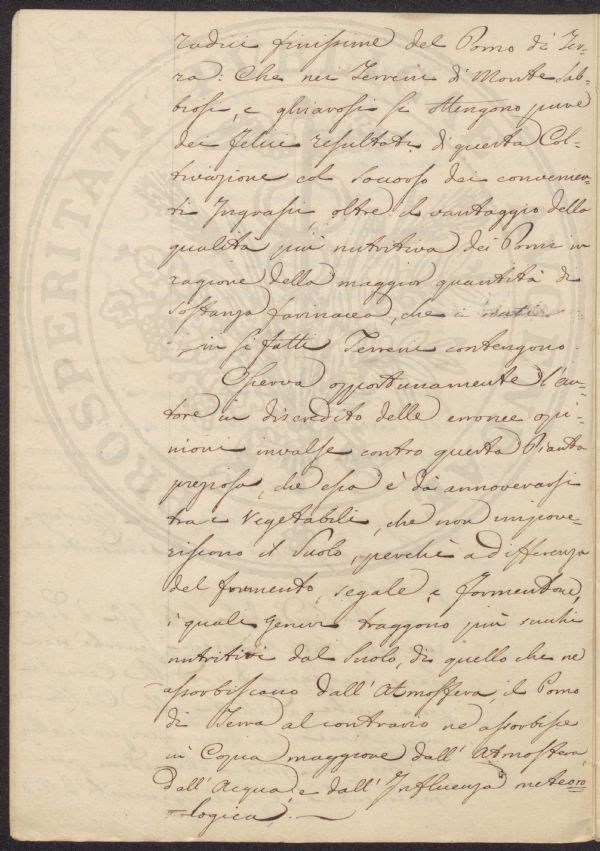 radici finissime del Pomo di Ter-
ra: Che nei Terreni di Monte Sab-
biosi, e ghiarosi si ottengono pure
dei felici resultati di questa Col-
tivazione col Soccorso dei convenien-
ti Ingrassi, oltre il vantaggio della
qualità più nutritiva dei Pomi in
ragione della maggior quantità di
Sostanza farinacea, che i nati
in si fatti Terreni contengono.
Osserva opportunamente l'au-
tore in discredito delle erronee opi-
nioni invalse contro questa Pianta
preziosa, che essa è da annoverarsi
tra i Vegetabili, che non impove-
riscono il Suolo, perchè a differenza
del formento, segale, e formentone,
i quali generi traggono più succhi
nutritivi dal Suolo, di quello che ne
assorbiscano dall'Atmosfera, il Pomo
di Terra al contrario ne assorbisse
in Copia maggiore dall'Atmosfera,
dall'Acqua, e dall'Influenza meteoro
=logica.
PROSPERITATI PUBLICAE